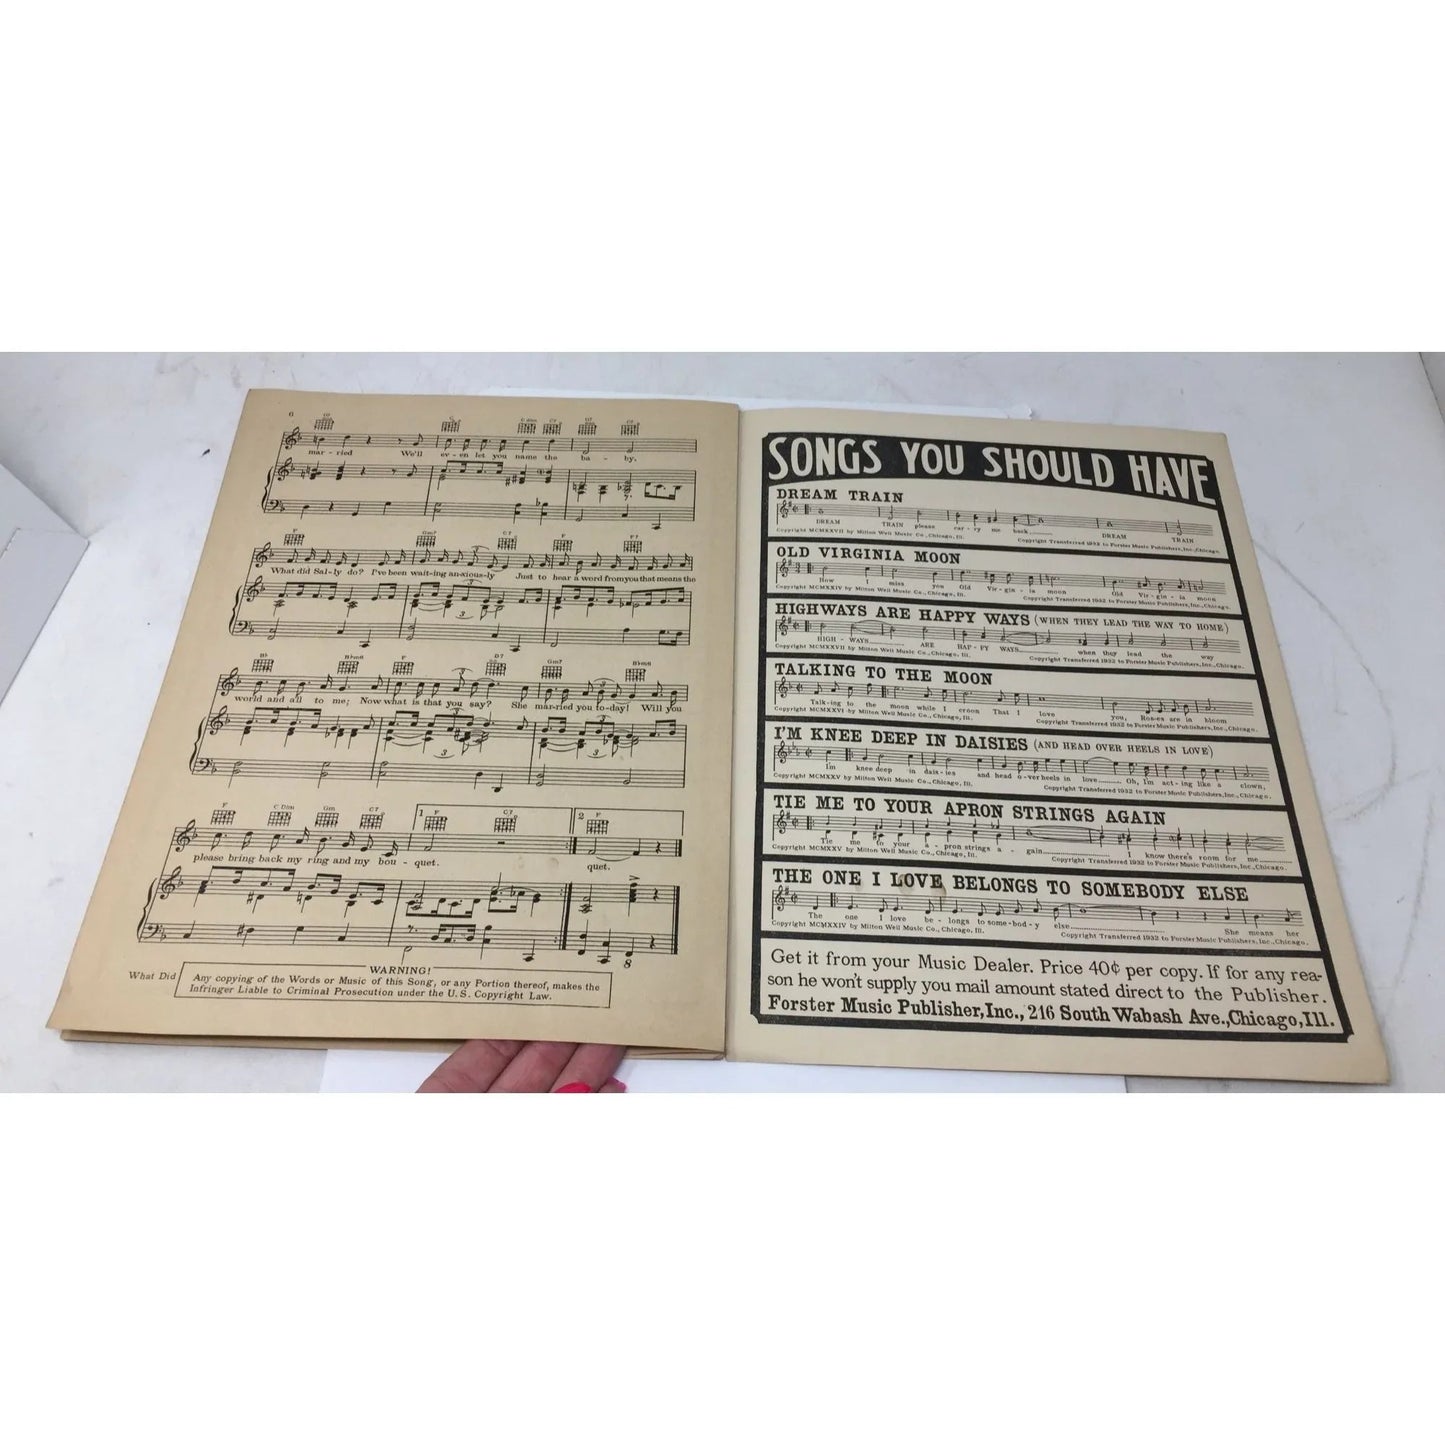 6
G7 C C dim C7 G7 C7
mar - ried We'll ev - en let you name the ba - by.
F Gm7 C7 F F7
What did Sal - ly do? I've been wait - ing anxious - ly Just to hear a word from you that means the
B♭ B♭m6 F D7 Gm7 B♭m6
world and all to me; Now what is that you say? She mar - ried you to - day! Will you
F C Dim Gm C7 1 F C7 2 F
please bring back my ring and my bou - quet. quet.
8
What Did
WARNING!
Any copying of the Words or Music of this Song, or any Portion thereof, makes the
Infringer Liable to Criminal Prosecution under the U.S. Copyright Law.
SONGS YOU SHOULD HAVE
DREAM TRAIN
DREAM TRAIN please car - ry me back DREAM TRAIN
Copyright MCMXXVII by Milton Weil Music Co., Chicago, Ill. Copyright Transferred 1932 to Forster Music Publishers, Inc., Chicago.
OLD VIRGINIA MOON
How I miss you Old Vir - gin - ia moon Old Vir - gin - ia moon
Copyright MCMXXIV by Milton Weil Music Co., Chicago, Ill. Copyright Transferred 1932 to Forster Music Publishers, Inc., Chicago.
HIGHWAYS ARE HAPPY WAYS (WHEN THEY LEAD THE WAY TO HOME)
HIGH - WAYS ARE HAP - PY WAYS when they lead the way
Copyright MCMXXVII by Milton Weil Music Co., Chicago, Ill. Copyright Transferred 1932 to Forster Music Publishers, Inc., Chicago.
TALKING TO THE MOON
Talk - ing to the moon while I croon That I love you, Ros - es are in bloom
Copyright MCMXXVI by Milton Weil Music Co., Chicago, Ill. Copyright Transferred 1932 to Forster Music Publishers, Inc., Chicago.
I'M KNEE DEEP IN DAISIES (AND HEAD OVER HEELS IN LOVE)
I'm knee deep in dais - ies and head o - ver heels in love Oh, I'm act - ing like a clown,
Copyright MCMXXV by Milton Weil Music Co., Chicago, Ill. Copyright Transferred 1932 to Forster Music Publishers, Inc., Chicago.
TIE ME TO YOUR APRON STRINGS AGAIN
Tie me to your a - pron strings a - gain I know there's room for me
Copyright MCMXXV by Milton Weil Music Co., Chicago, Ill. Copyright Transferred 1932 to Forster Music Publishers, Inc., Chicago.
THE ONE I LOVE BELONGS TO SOMEBODY ELSE
The one I love be - longs to some - bod - y else She means her
Copyright MCMXXIV by Milton Weil Music Co., Chicago, Ill. Copyright Transferred 1932 to Forster Music Publishers, Inc., Chicago.
Get it from your Music Dealer. Price 40¢ per copy. If for any rea-
son he won't supply you mail amount stated direct to the Publisher.
Forster Music Publisher, Inc., 216 South Wabash Ave., Chicago, Ill.